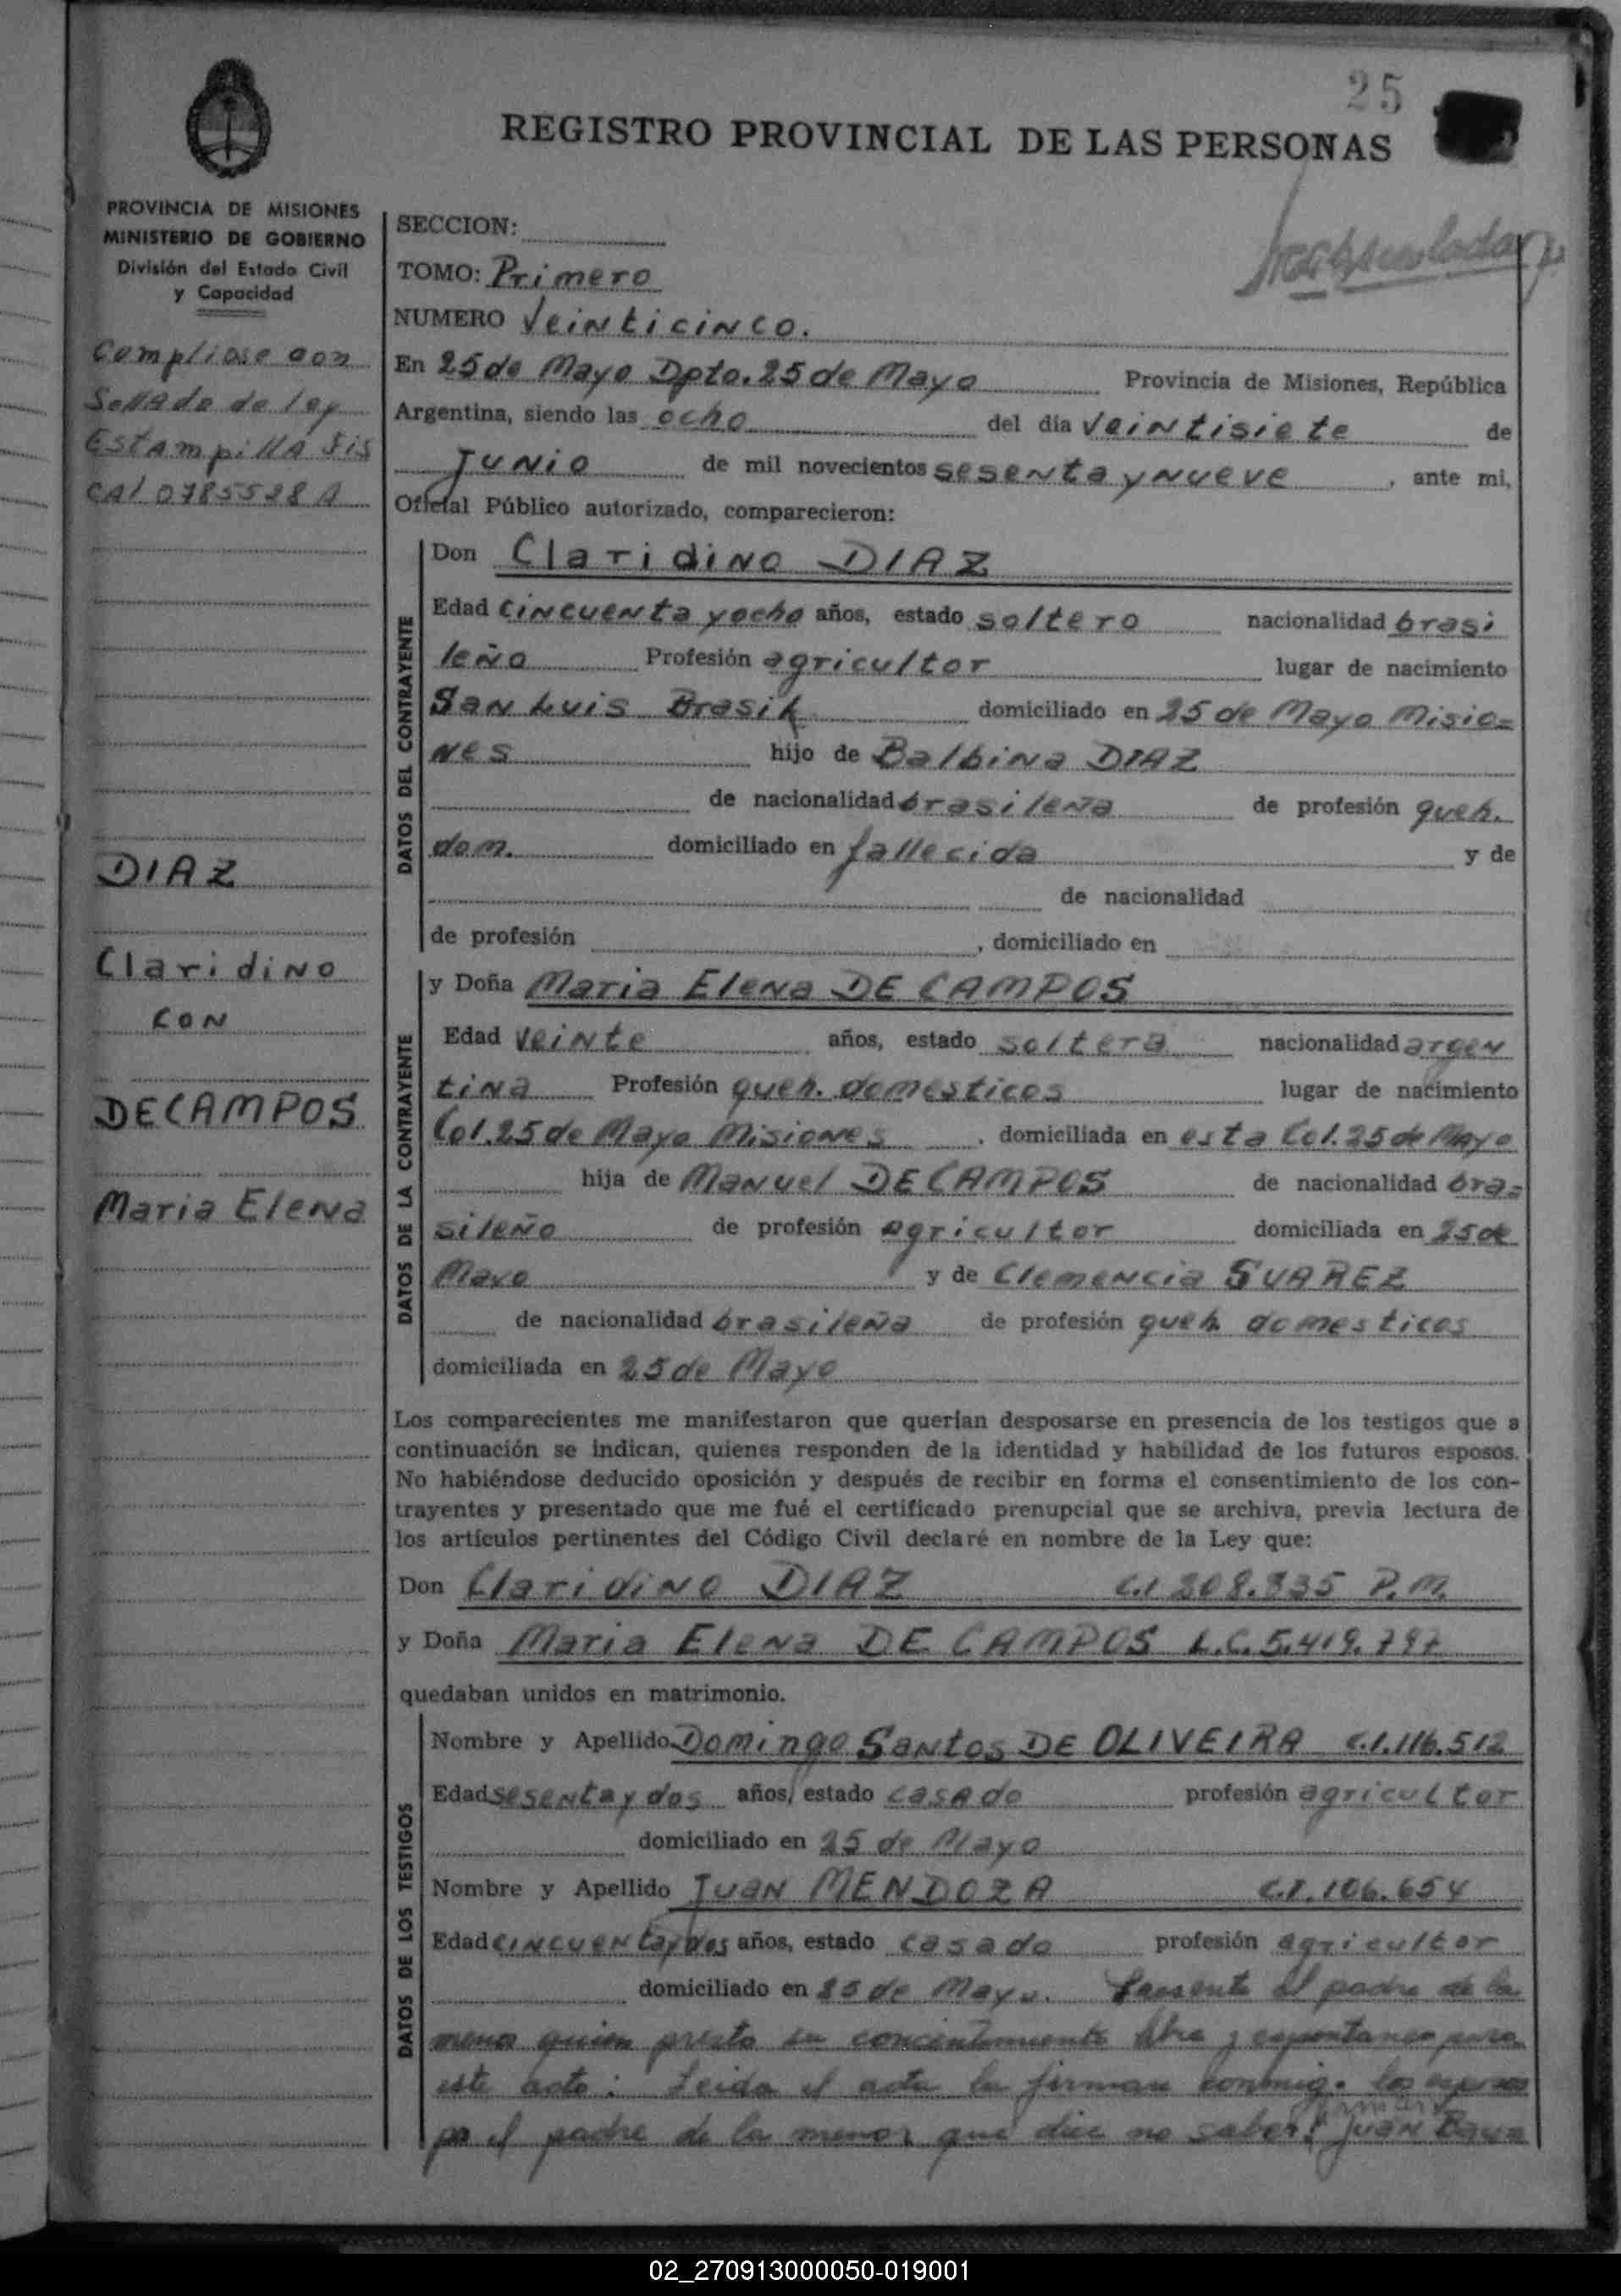 25
REGISTRO PROVINCIAL DE LAS PERSONAS
PROVINCIA DE MISIONES
MINISTERIO DE GOBIERNO
División del Estado Civil
y Capacidad
Cumpliose con
Sellado de ley
Estampilla fis
cal 0785528 A
DIAZ
Claridino
CON
DECAMPOS
Maria Elena
SECCION:
TOMO: Primero
NUMERO Veinticinco.
En 25 de Mayo Dpto. 25 de Mayo Provincia de Misiones, República
Argentina, siendo las ocho del día Veintisiete de
Junio de mil novecientos sesenta y nueve, ante mi,
Oficial Público autorizado, comparecieron:
DATOS DEL CONTRAYENTE
Don Claridino DIAZ
Edad cincuenta y ocho años, estado soltero nacionalidad brasi
leño Profesión agricultor lugar de nacimiento
San Luis Brasil domiciliado en 25 de Mayo Misio=
nes hijo de Balbina DIAZ
de nacionalidad brasileña de profesión queh.
dom. domiciliado en fallecida y de
de nacionalidad
de profesión , domiciliado en
DATOS DE LA CONTRAYENTE
y Doña Maria Elena DE CAMPOS
Edad veinte años, estado soltera nacionalidad argen
tina Profesión queh. domesticos lugar de nacimiento
Col. 25 de Mayo Misiones , domiciliada en esta Col. 25 de Mayo
hija de Manuel DE CAMPOS de nacionalidad bra=
sileño de profesión agricultor domiciliada en 25 de
Mayo y de Clemencia SUAREZ
de nacionalidad brasileña de profesión queh domesticos
domiciliada en 25 de Mayo
Los comparecientes me manifestaron que querían desposarse en presencia de los testigos que a
continuación se indican, quienes responden de la identidad y habilidad de los futuros esposos.
No habiéndose deducido oposición y después de recibir en forma el consentimiento de los con-
trayentes y presentado que me fué el certificado prenupcial que se archiva, previa lectura de
los artículos pertinentes del Código Civil declaré en nombre de la Ley que:
Don Claridino DIAZ C.I 208.335 P.M.
y Doña Maria Elena DE CAMPOS L.C. 5.419.797
quedaban unidos en matrimonio.
DATOS DE LOS TESTIGOS
Nombre y Apellido Domingo Santos DE OLIVEIRA C.I.116.512
Edad sesenta y dos años, estado casado profesión agricultor
domiciliado en 25 de Mayo
Nombre y Apellido Juan MENDOZA C.I. 106.654
Edad cincuenta y dos años, estado casado profesión agricultor
domiciliado en 25 de Mayo. Presente el padre de la
menor quien presta su concentimiento libre y espontaneo para
este acto: Leida el acta la firman conmigo los esposos
por el padre de la menor que dice no saber firmar Juan
02_270913000050-019001